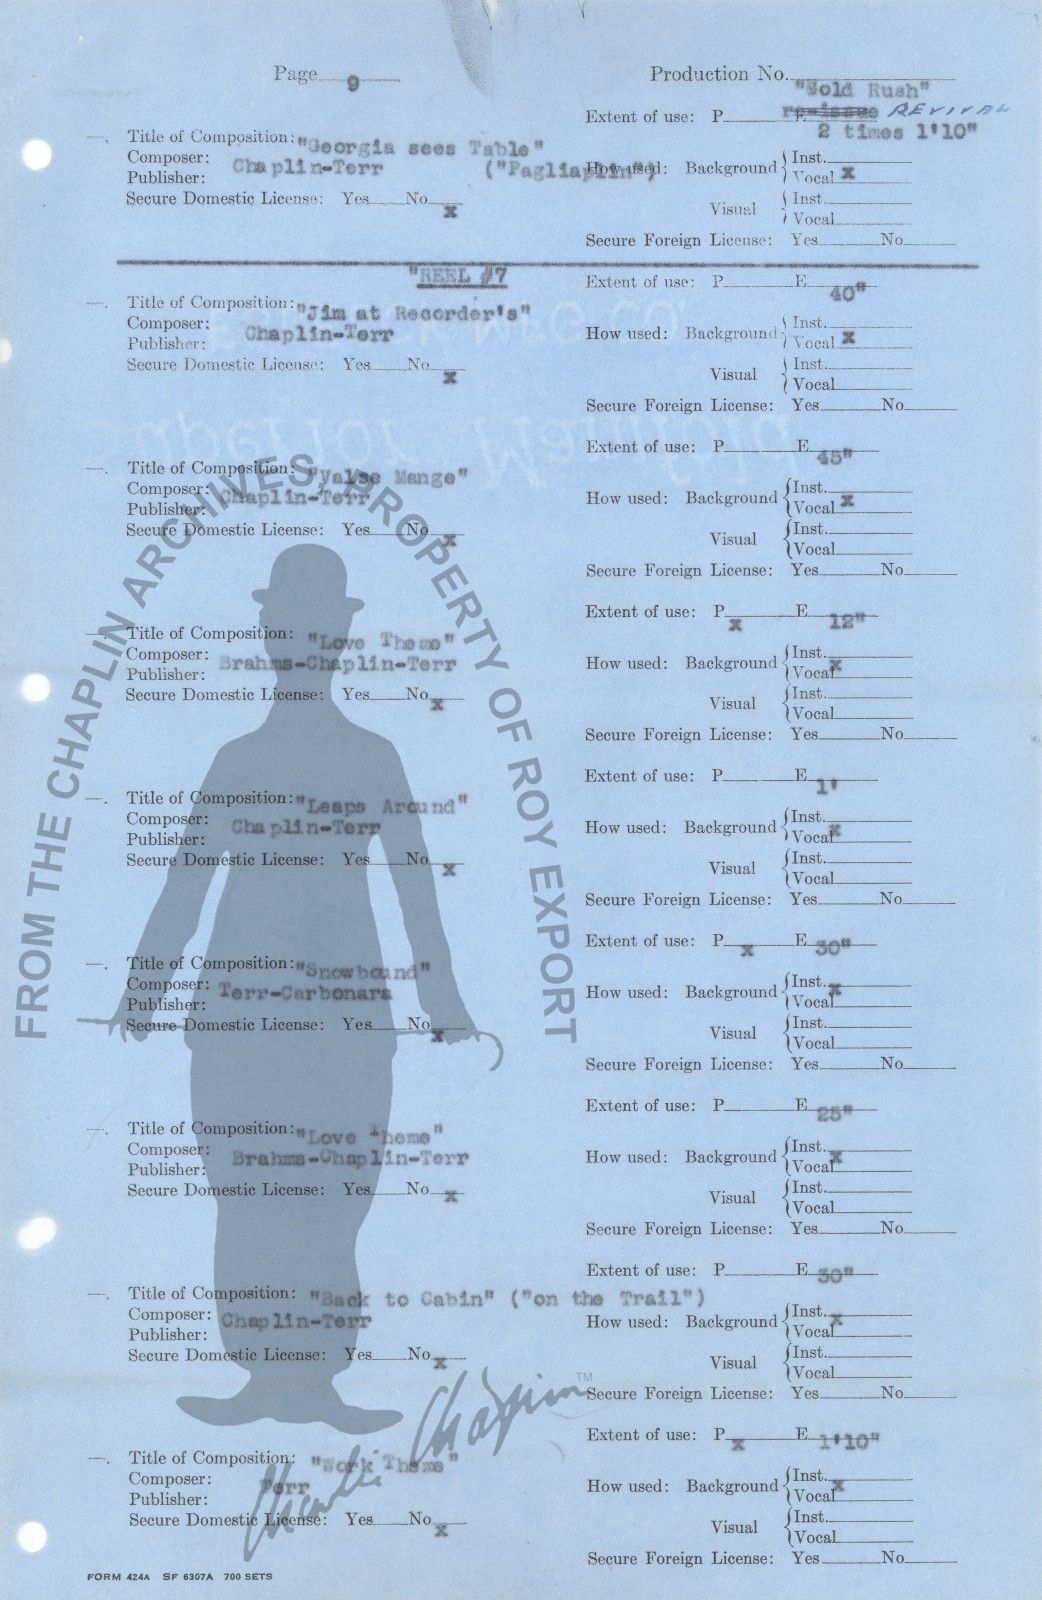 Page 9
Production No. "Gold Rush"
re-issue REVIVAL
Extent of use: P E 2 times 1'10"
Title of Composition: "Georgia sees Table"
Composer: Chaplin-Terr ("Pagliaplin")
Publisher:
Secure Domestic License: Yes No x
How used: Background Inst.
Vocal x
Visual Inst.
Vocal
Secure Foreign License: Yes No
"REEL #7
Extent of use: P E 40"
Title of Composition: "Jim at Recorder's"
Composer: Chaplin-Terr
Publisher:
Secure Domestic License: Yes No x
How used: Background Inst.
Vocal x
Visual Inst.
Vocal
Secure Foreign License: Yes No
Extent of use: P E 45"
Title of Composition: "Valse Mange"
Composer: Chaplin-Terr
Publisher:
Secure Domestic License: Yes No x
How used: Background Inst.
Vocal x
Visual Inst.
Vocal
Secure Foreign License: Yes No
Extent of use: P x E 12"
Title of Composition: "Love Theme"
Composer: Brahms-Chaplin-Terr
Publisher:
Secure Domestic License: Yes No x
How used: Background Inst.
Vocal x
Visual Inst.
Vocal
Secure Foreign License: Yes No
Extent of use: P E 1'
Title of Composition: "Leaps Around"
Composer: Chaplin-Terr
Publisher:
Secure Domestic License: Yes No x
How used: Background Inst.
Vocal x
Visual Inst.
Vocal
Secure Foreign License: Yes No
Extent of use: P x E 30"
Title of Composition: "Snowbound"
Composer: Terr-Carbonara
Publisher:
Secure Domestic License: Yes No x
How used: Background Inst. x
Vocal
Visual Inst.
Vocal
Secure Foreign License: Yes No
Extent of use: P E 25"
Title of Composition: "Love Theme"
Composer: Brahms-Chaplin-Terr
Publisher:
Secure Domestic License: Yes No x
How used: Background Inst. x
Vocal
Visual Inst.
Vocal
Secure Foreign License: Yes No
Extent of use: P E 30"
Title of Composition: "Back to Cabin" ("on the Trail")
Composer: Chaplin-Terr
Publisher:
Secure Domestic License: Yes No x
How used: Background Inst. x
Vocal
Visual Inst.
Vocal
Secure Foreign License: Yes No
Extent of use: P x E 1'10"
Title of Composition: "Work Theme"
Composer: Terr
Publisher:
Secure Domestic License: Yes No x
How used: Background Inst. x
Vocal
Visual Inst.
Vocal
Secure Foreign License: Yes No
FORM 424A SF 6307A 700 SETS
FROM THE CHAPLIN ARCHIVES, PROPERTY OF ROY EXPORT
Charlie Chaplin TM